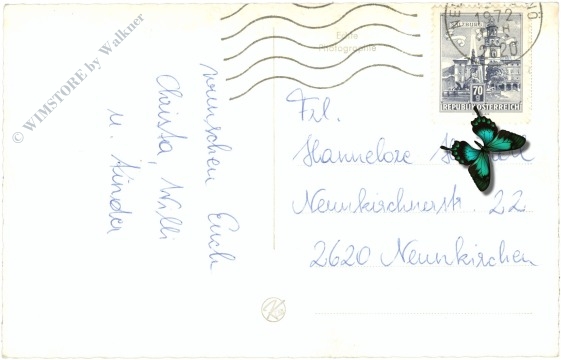 © WIMSTORE by Walkner
wünschen Euch
Christa, Willi
u. Kinder
Echte
Photographie
1972
20
70
REPUBLIK ÖSTERREICH
Frl.
Hannelore
Neunkirchnerstr. 22
2620 Neunkirchen